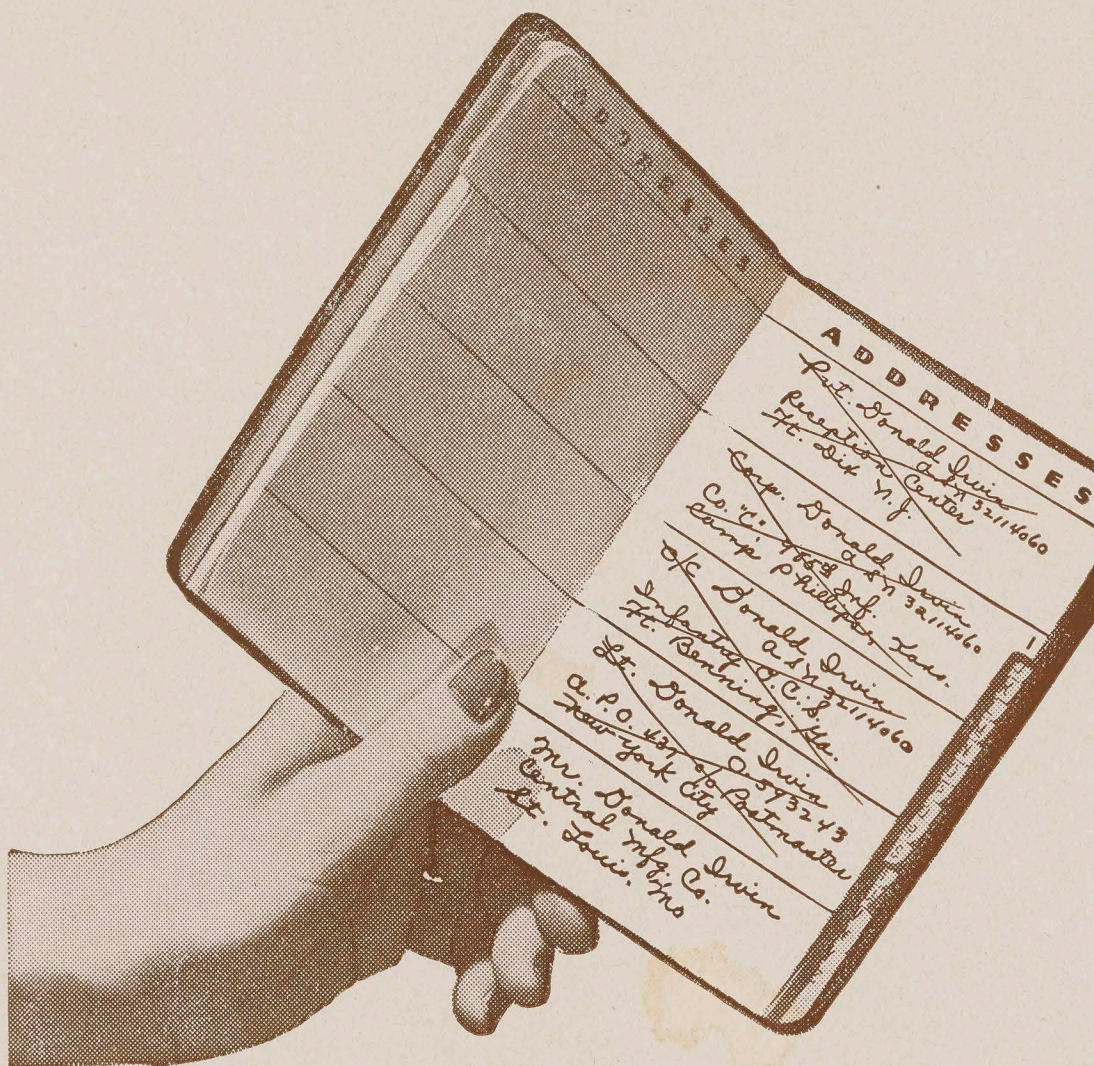 ADDRESSES
ADDRESSES
Pvt. Donald Irvin
a s n 32114060
Reception Center
Ft. Dix N.J.
Corp. Donald Irvin
a s n 32114060
Co. "C", Inf.
Camp Phillips, Kans.
o/c Donald Irvin
a s n 32114060
Infantry O.C.S.
Ft. Benning, Ga.
Lt. Donald Irvin
O 593243
A.P.O. 437 c/o Postmaster
New York City
Mr. Donald Irvin
Central Mfg. Co.
St. Louis. Mo